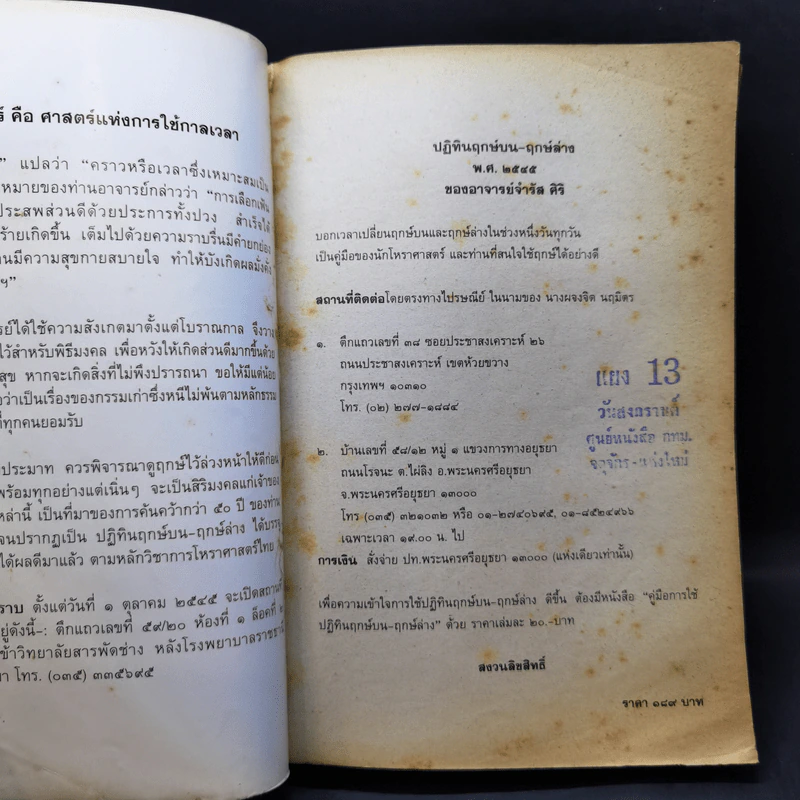 คือ ศาสตร์แห่งการใช้กาลเวลา
” แปลว่า “คราวหรือเวลาซึ่งเหมาะสมเป็น
หมายของท่านอาจารย์กล่าวว่า “การเลือกเฟ้น
ประสพส่วนดีด้วยประการทั้งปวง สำเร็จได้
ร้ายเกิดขึ้น เต็มไปด้วยความราบรื่นมีคำยกย่อง
านมีความสุขกายสบายใจ ทำให้บังเกิดผลมั่งคั่ง
ฯ”
รย์ได้ใช้ความสังเกตมาตั้งแต่โบราณกาล จึงวาง
ไว้สำหรับพิธีมงคล เพื่อหวังให้เกิดส่วนดีมากขึ้นด้วย
สุข หากจะเกิดสิ่งที่ไม่พึงปรารถนา ขอให้มีแต่น้อย
อว่าเป็นเรื่องของกรรมเก่าซึ่งหนีไม่พ้นตามหลักธรรม
ที่ทุกคนยอมรับ
ประมาท ควรพิจารณาดูฤกษ์ไว้ล่วงหน้าให้ดีก่อน
พร้อมทุกอย่างแต่เนิ่นๆ จะเป็นสิริมงคลแก่เจ้าของ
เหล่านี้ เป็นที่มาของการค้นคว้ากว่า ๕๐ ปี ของท่าน
จนปรากฏเป็น ปฏิทินฤกษ์บน-ฤกษ์ล่าง ได้บรรจุ
ได้ผลดีมาแล้ว ตามหลักวิชาการโหราศาสตร์ไทย
ราบ ตั้งแต่วันที่ ๑ ตุลาคม ๒๕๔๕ จะเปิดสถานที่
ยู่ดังนี้-: ตึกแถวเลขที่ ๕๙/๒๐ ห้องที่ ๑ ล็อคที่
ข้าวิทยาลัยสารพัดช่าง หลังโรงพยาบาลราชธานี
ยา โทร. (๐๓๕) ๓๓๕๖๙๕
ปฏิทินฤกษ์บน-ฤกษ์ล่าง
พ.ศ. ๒๕๔๕
ของอาจารย์จำรัส ศิริ
บอกเวลาเปลี่ยนฤกษ์บนและฤกษ์ล่างในช่วงหนึ่งวันทุกวัน
เป็นคู่มือของนักโหราศาสตร์ และท่านที่สนใจใช้ฤกษ์ได้อย่างดี
สถานที่ติดต่อโดยตรงทางไปรษณีย์ ในนามของ นางผจงจิต นฤมิตร
๑. ตึกแถวเลขที่ ๓๘ ซอยประชาสงเคราะห์ ๒๖
ถนนประชาสงเคราะห์ เขตห้วยขวาง
กรุงเทพฯ ๑๐๓๑๐
โทร. (๐๒) ๒๗๗-๑๘๘๔
แผง 13
วันสงกรานต์
ศูนย์หนังสือ กทม.
จตุจักร-แห่งใหม่
๒. บ้านเลขที่ ๕๘/๑๒ หมู่ ๑ แขวงการทางอยุธยา
ถนนโรจนะ ต.ไผ่ลิง อ.พระนครศรีอยุธยา
จ.พระนครศรีอยุธยา ๑๓๐๐๐
โทร (๐๓๕) ๓๒๑๐๓๒ หรือ ๐๑-๒๗๔๐๖๙๕, ๐๑-๘๕๒๔๙๖๖
เฉพาะเวลา ๑๙.๐๐ น. ไป
การเงิน สั่งจ่าย ปท.พระนครศรีอยุธยา ๑๓๐๐๐ (แห่งเดียวเท่านั้น)
เพื่อความเข้าใจการใช้ปฏิทินฤกษ์บน-ฤกษ์ล่าง ดีขึ้น ต้องมีหนังสือ “คู่มือการใช้
ปฏิทินฤกษ์บน-ฤกษ์ล่าง” ด้วย ราคาเล่มละ ๒๐.-บาท
สงวนลิขสิทธิ์
ราคา ๑๘๙ บาท